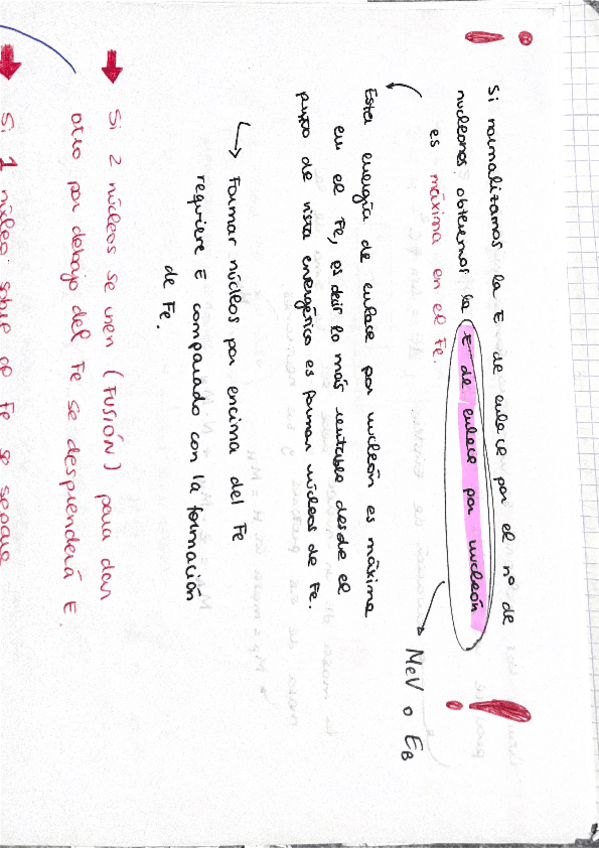 Si normalizamos la E de enlace por el nº de
nucleones obtenemos la E de enlace por nucleón
es máxima en el Fe.
MeV o EB
Esta energía de enlace por nucleón es máxima
en el Fe, es decir lo más rentable desde el
punto de vista energético es formar núcleos de Fe.
→ Formar núcleos por encima del Fe
requiere E comparado con la formación
de Fe.
Si 2 núcleos se unen (FUSIÓN) para dar
otro por debajo del Fe se desprenderá E
Si 1 núcleo sobre el Fe se separa